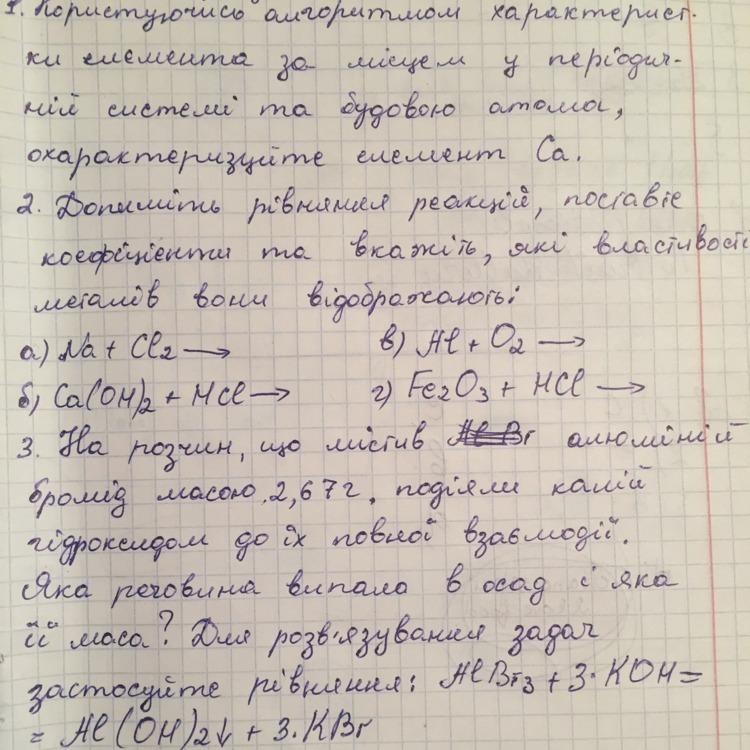 1. Користуючись алгоритмом характерист-
ки елемента за місцем у періодич-
ній системі та будовою атома,
охарактеризуйте елемент Ca.
2. Допишіть рівняння реакцій, поставте
коефіцієнти та вкажіть, які властивості
металів вони відображають:
а) Na + Cl₂ → в) Al + O₂ →
б) Ca(OH)₂ + HCl → г) Fe₂O₃ + HCl →
3. На розчин, що містив алюміній
бромід масою 2,67 г, подіяли калій
гідроксидом до їх повної взаємодії.
Яка речовина випала в осад і яка
її маса? Для розв'язування задач
застосуйте рівняння: AlBr₃ + 3·KOH =
= Al(OH)₂↓ + 3·KBr